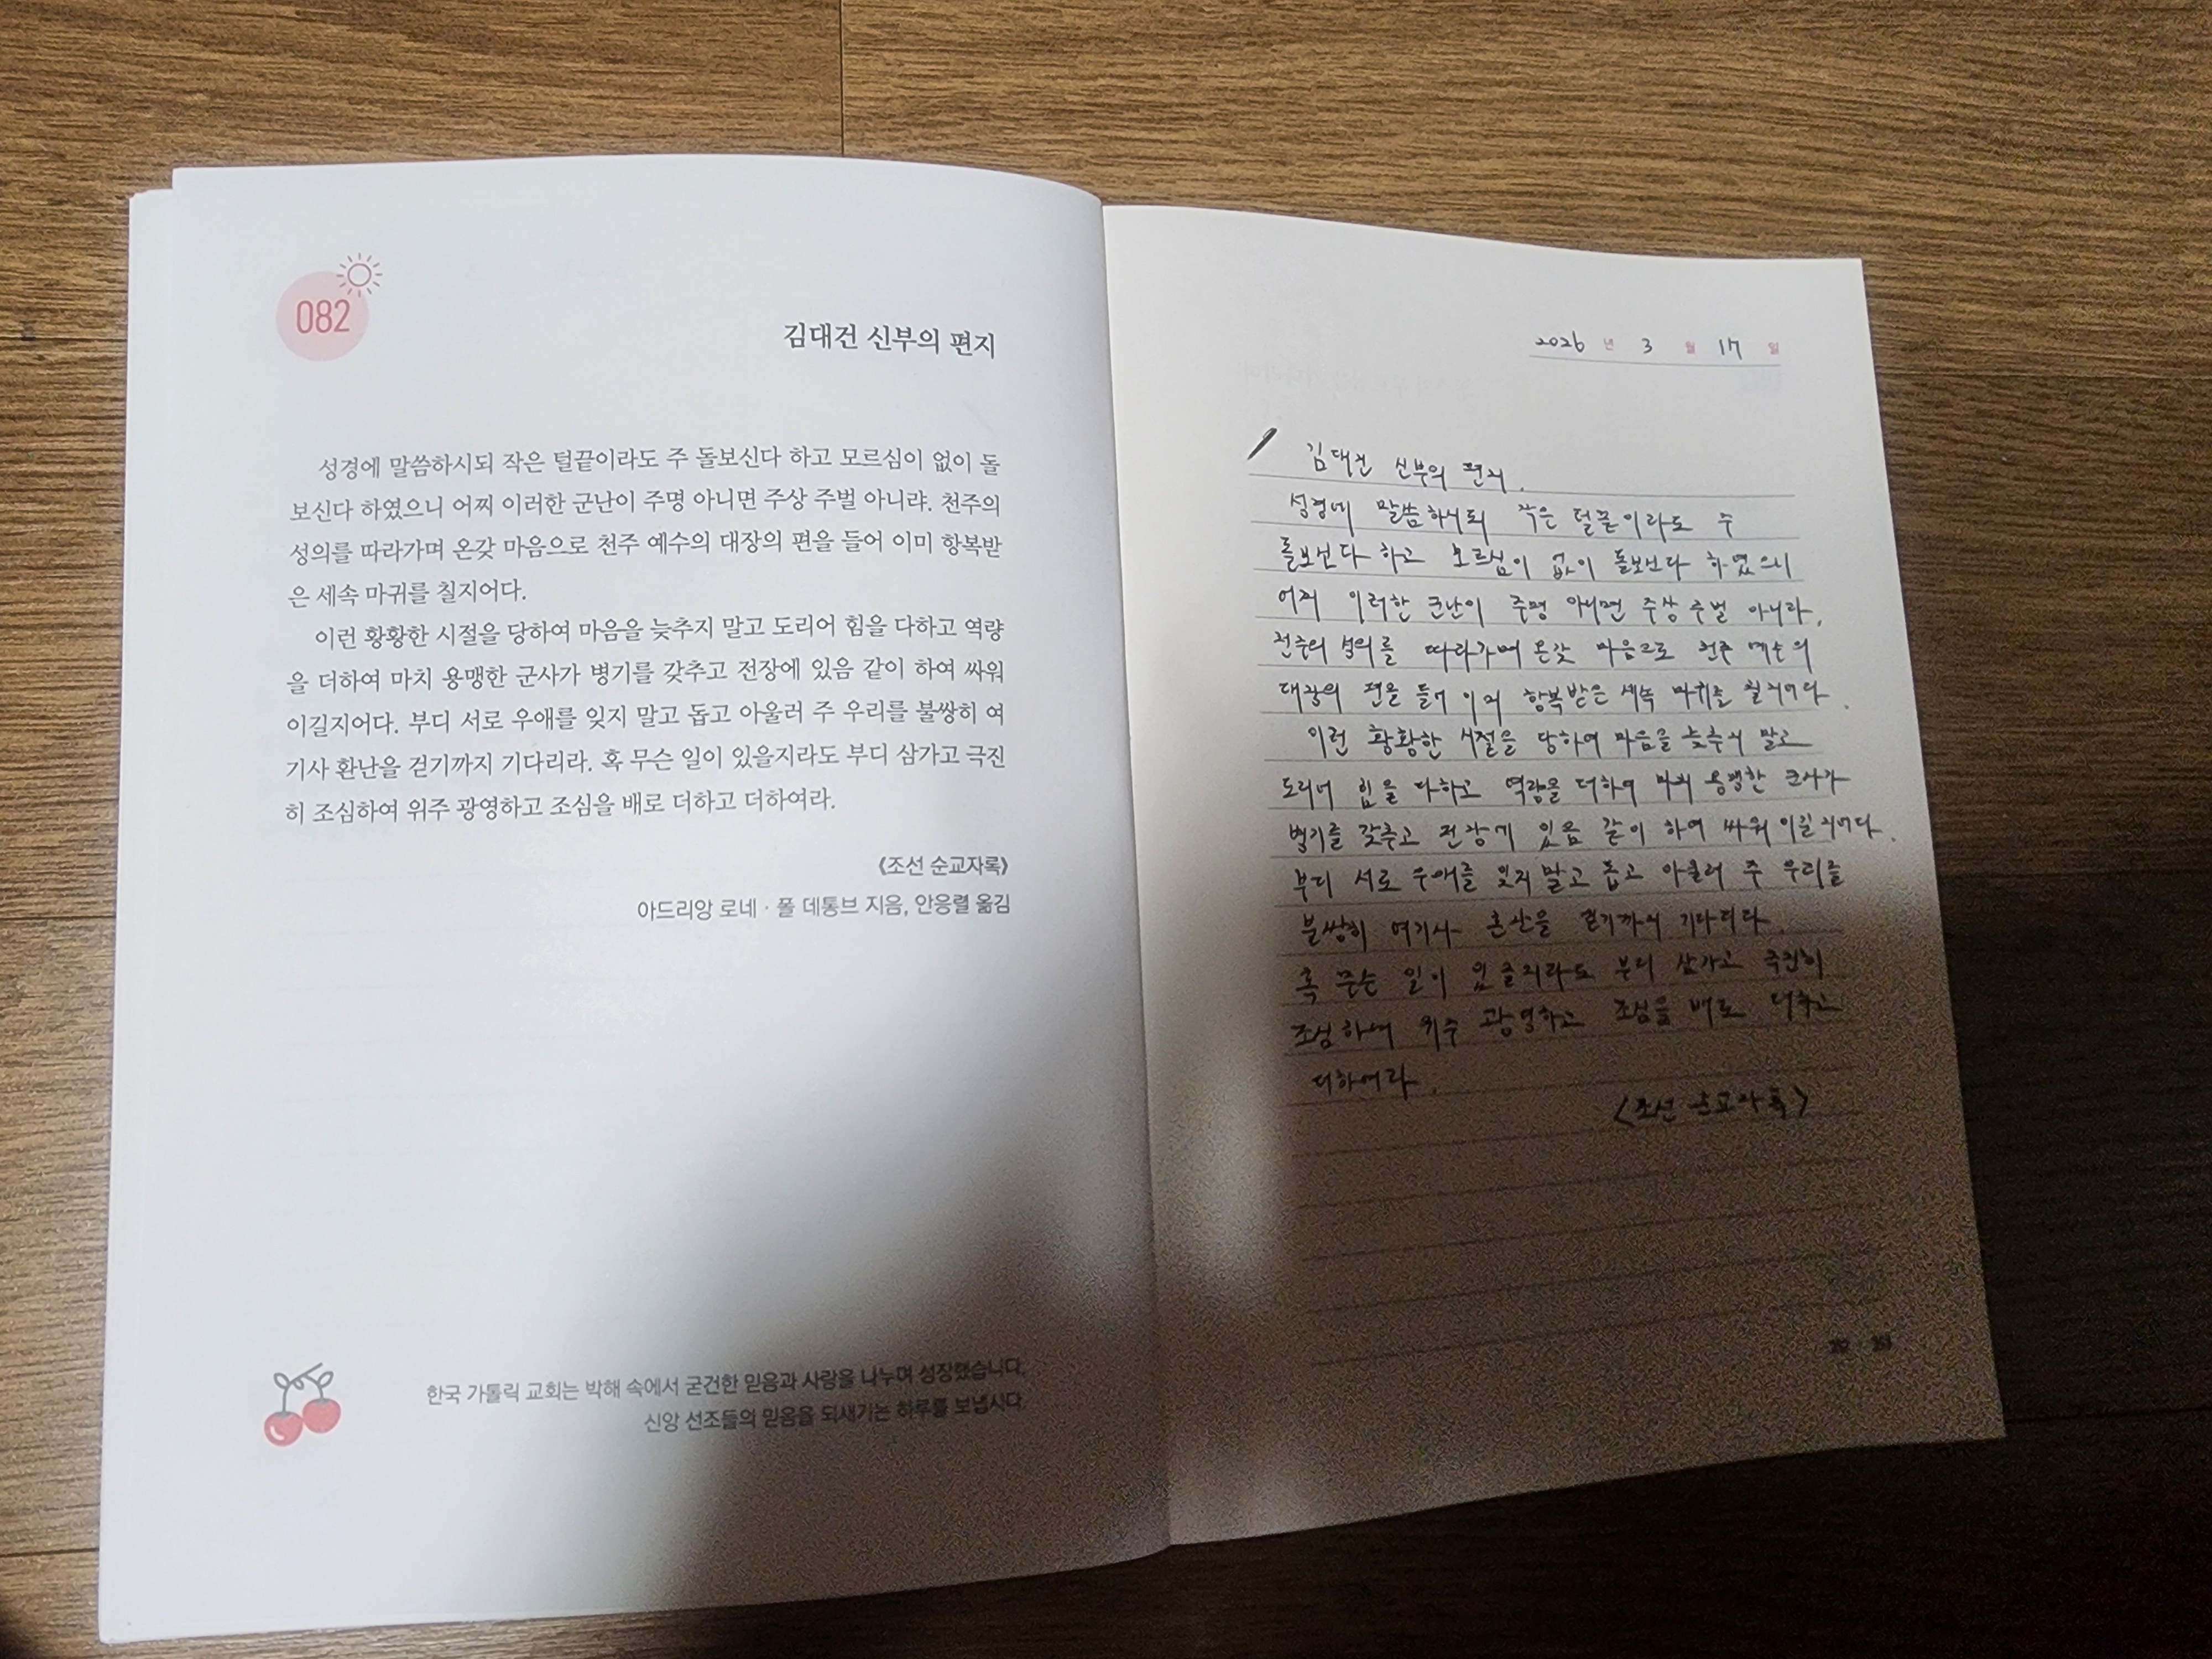 082
김대건 신부의 편지
성경에 말씀하시되 작은 털끝이라도 주 돌보신다 하고 모르심이 없이 돌
보신다 하였으니 어찌 이러한 군난이 주명 아니면 주상 주벌 아니랴. 천주의
성의를 따라가며 온갖 마음으로 천주 예수의 대장의 편을 들어 이미 항복받
은 세속 마귀를 칠지어다.
이런 황황한 시절을 당하여 마음을 늦추지 말고 도리어 힘을 다하고 역량
을 더하여 마치 용맹한 군사가 병기를 갖추고 전장에 있음 같이 하여 싸워
이길지어다. 부디 서로 우애를 잊지 말고 돕고 아울러 주 우리를 불쌍히 여
기사 환난을 걷기까지 기다리라. 혹 무슨 일이 있을지라도 부디 삼가고 극진
히 조심하여 위주 광영하고 조심을 배로 더하고 더하여라.
《조선 순교자록》
아드리앙 로네 · 폴 데통브 지음, 안응렬 옮김
한국 가톨릭 교회는 박해 속에서 굳건한 믿음과 사랑을 나누며 성장했습니다.
신앙 선조들의 믿음을 되새기는 하루를 보냅시다.
2026 년 3 월 17 일
김대건 신부의 편지.
성경에 말씀하시되 작은 털끝이라도 주
돌보신다 하고 모르심이 없이 돌보신다 하였으니
어찌 이러한 군난이 주명 아니면 주상 주벌 아니랴.
천주의 성의를 따라가며 온갖 마음으로 천주 예수의
대장의 편을 들어 이미 항복받은 세속 마귀를 칠지어다.
이런 황황한 시절을 당하여 마음을 늦추지 말고
도리어 힘을 다하고 역량을 더하여 마치 용맹한 군사가
병기를 갖추고 전장에 있음 같이 하여 싸워 이길지어다.
부디 서로 우애를 잊지 말고 돕고 아울러 주 우리를
불쌍히 여기사 걷기까지 기다리라.
혹 무슨 일이 있을지라도 부디 삼가고 극진히
조심하여 위주 광영하고 조심을 배로 더하고
더하여라.
<조선 순교자록>